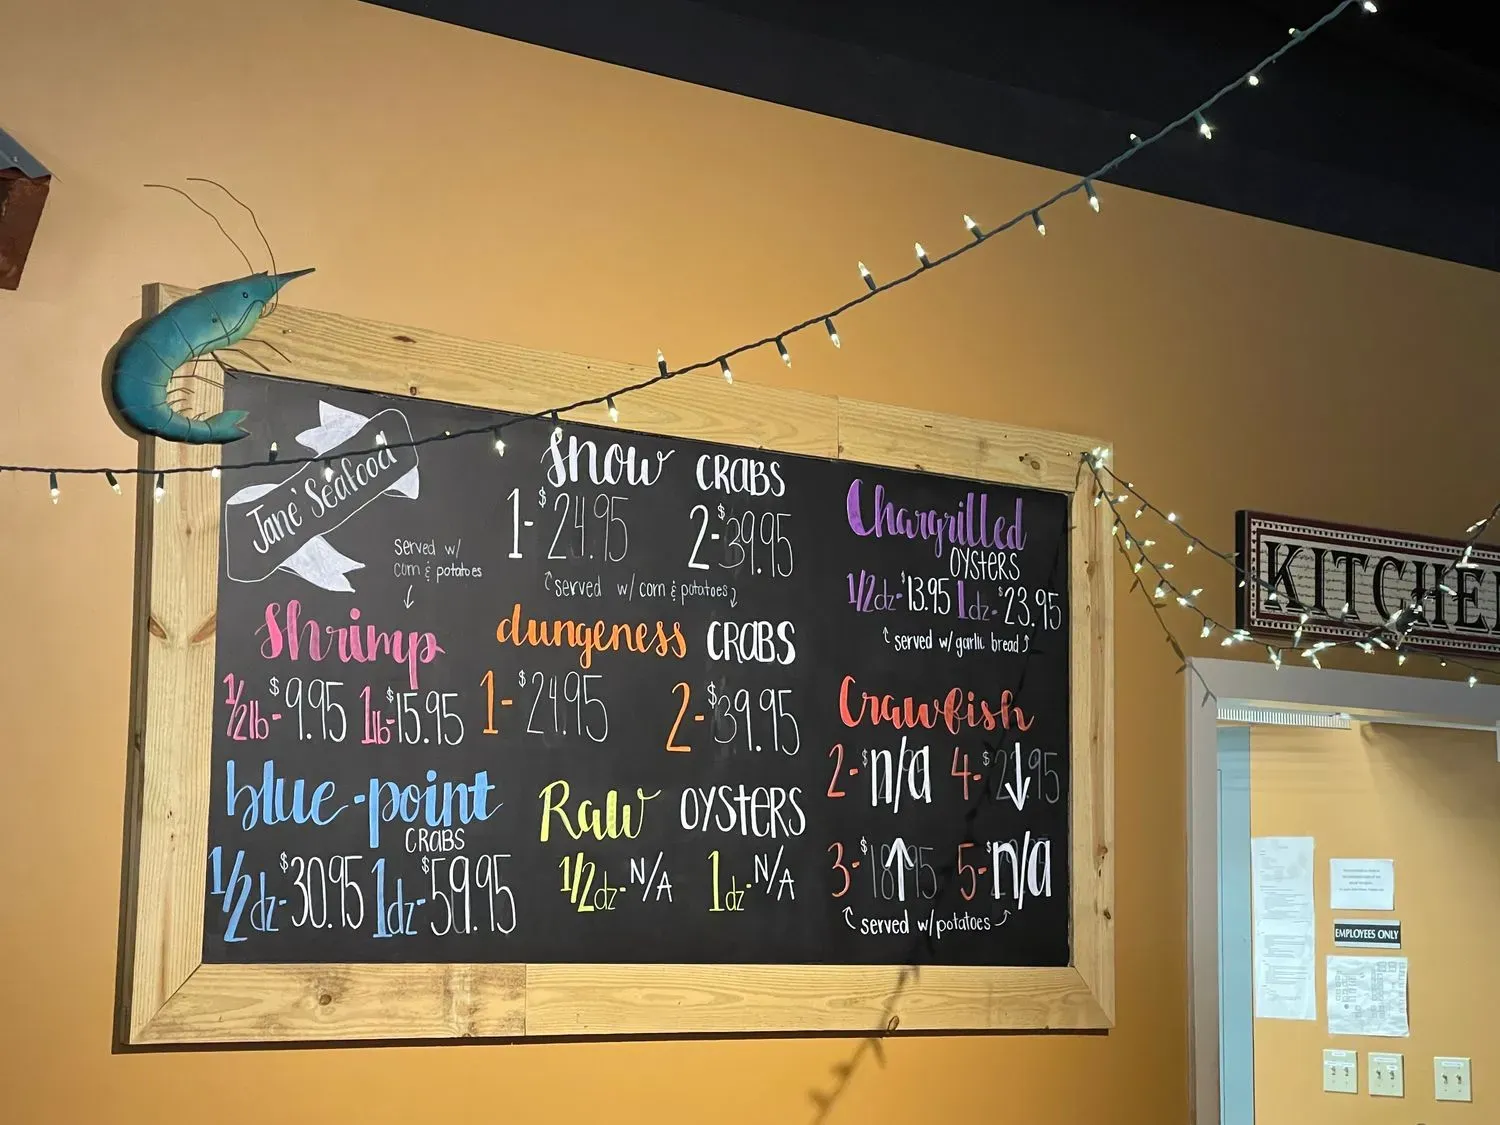 Jane' Seafood
Snow CRABS
1-$24.95 2-$39.95
served w/ corn & potatoes
served w/
corn & potatoes
Shrimp
1/2lb-$9.95 1lb-$15.95
dungeness CRABS
1-$24.95 2-$39.95
blue-point
CRABS
1/2dz-$30.95 1dz-$59.95
Raw OYSTERS
1/2dz-N/A 1dz-N/A
Chargrilled
OYSTERS
1/2dz-$13.95 1dz-$23.95
served w/ garlic bread
Crawfish
2-$n/a 4-$
3-$18.95 5-$n/a
served w/potatoes
KITCHEN
EMPLOYEES ONLY